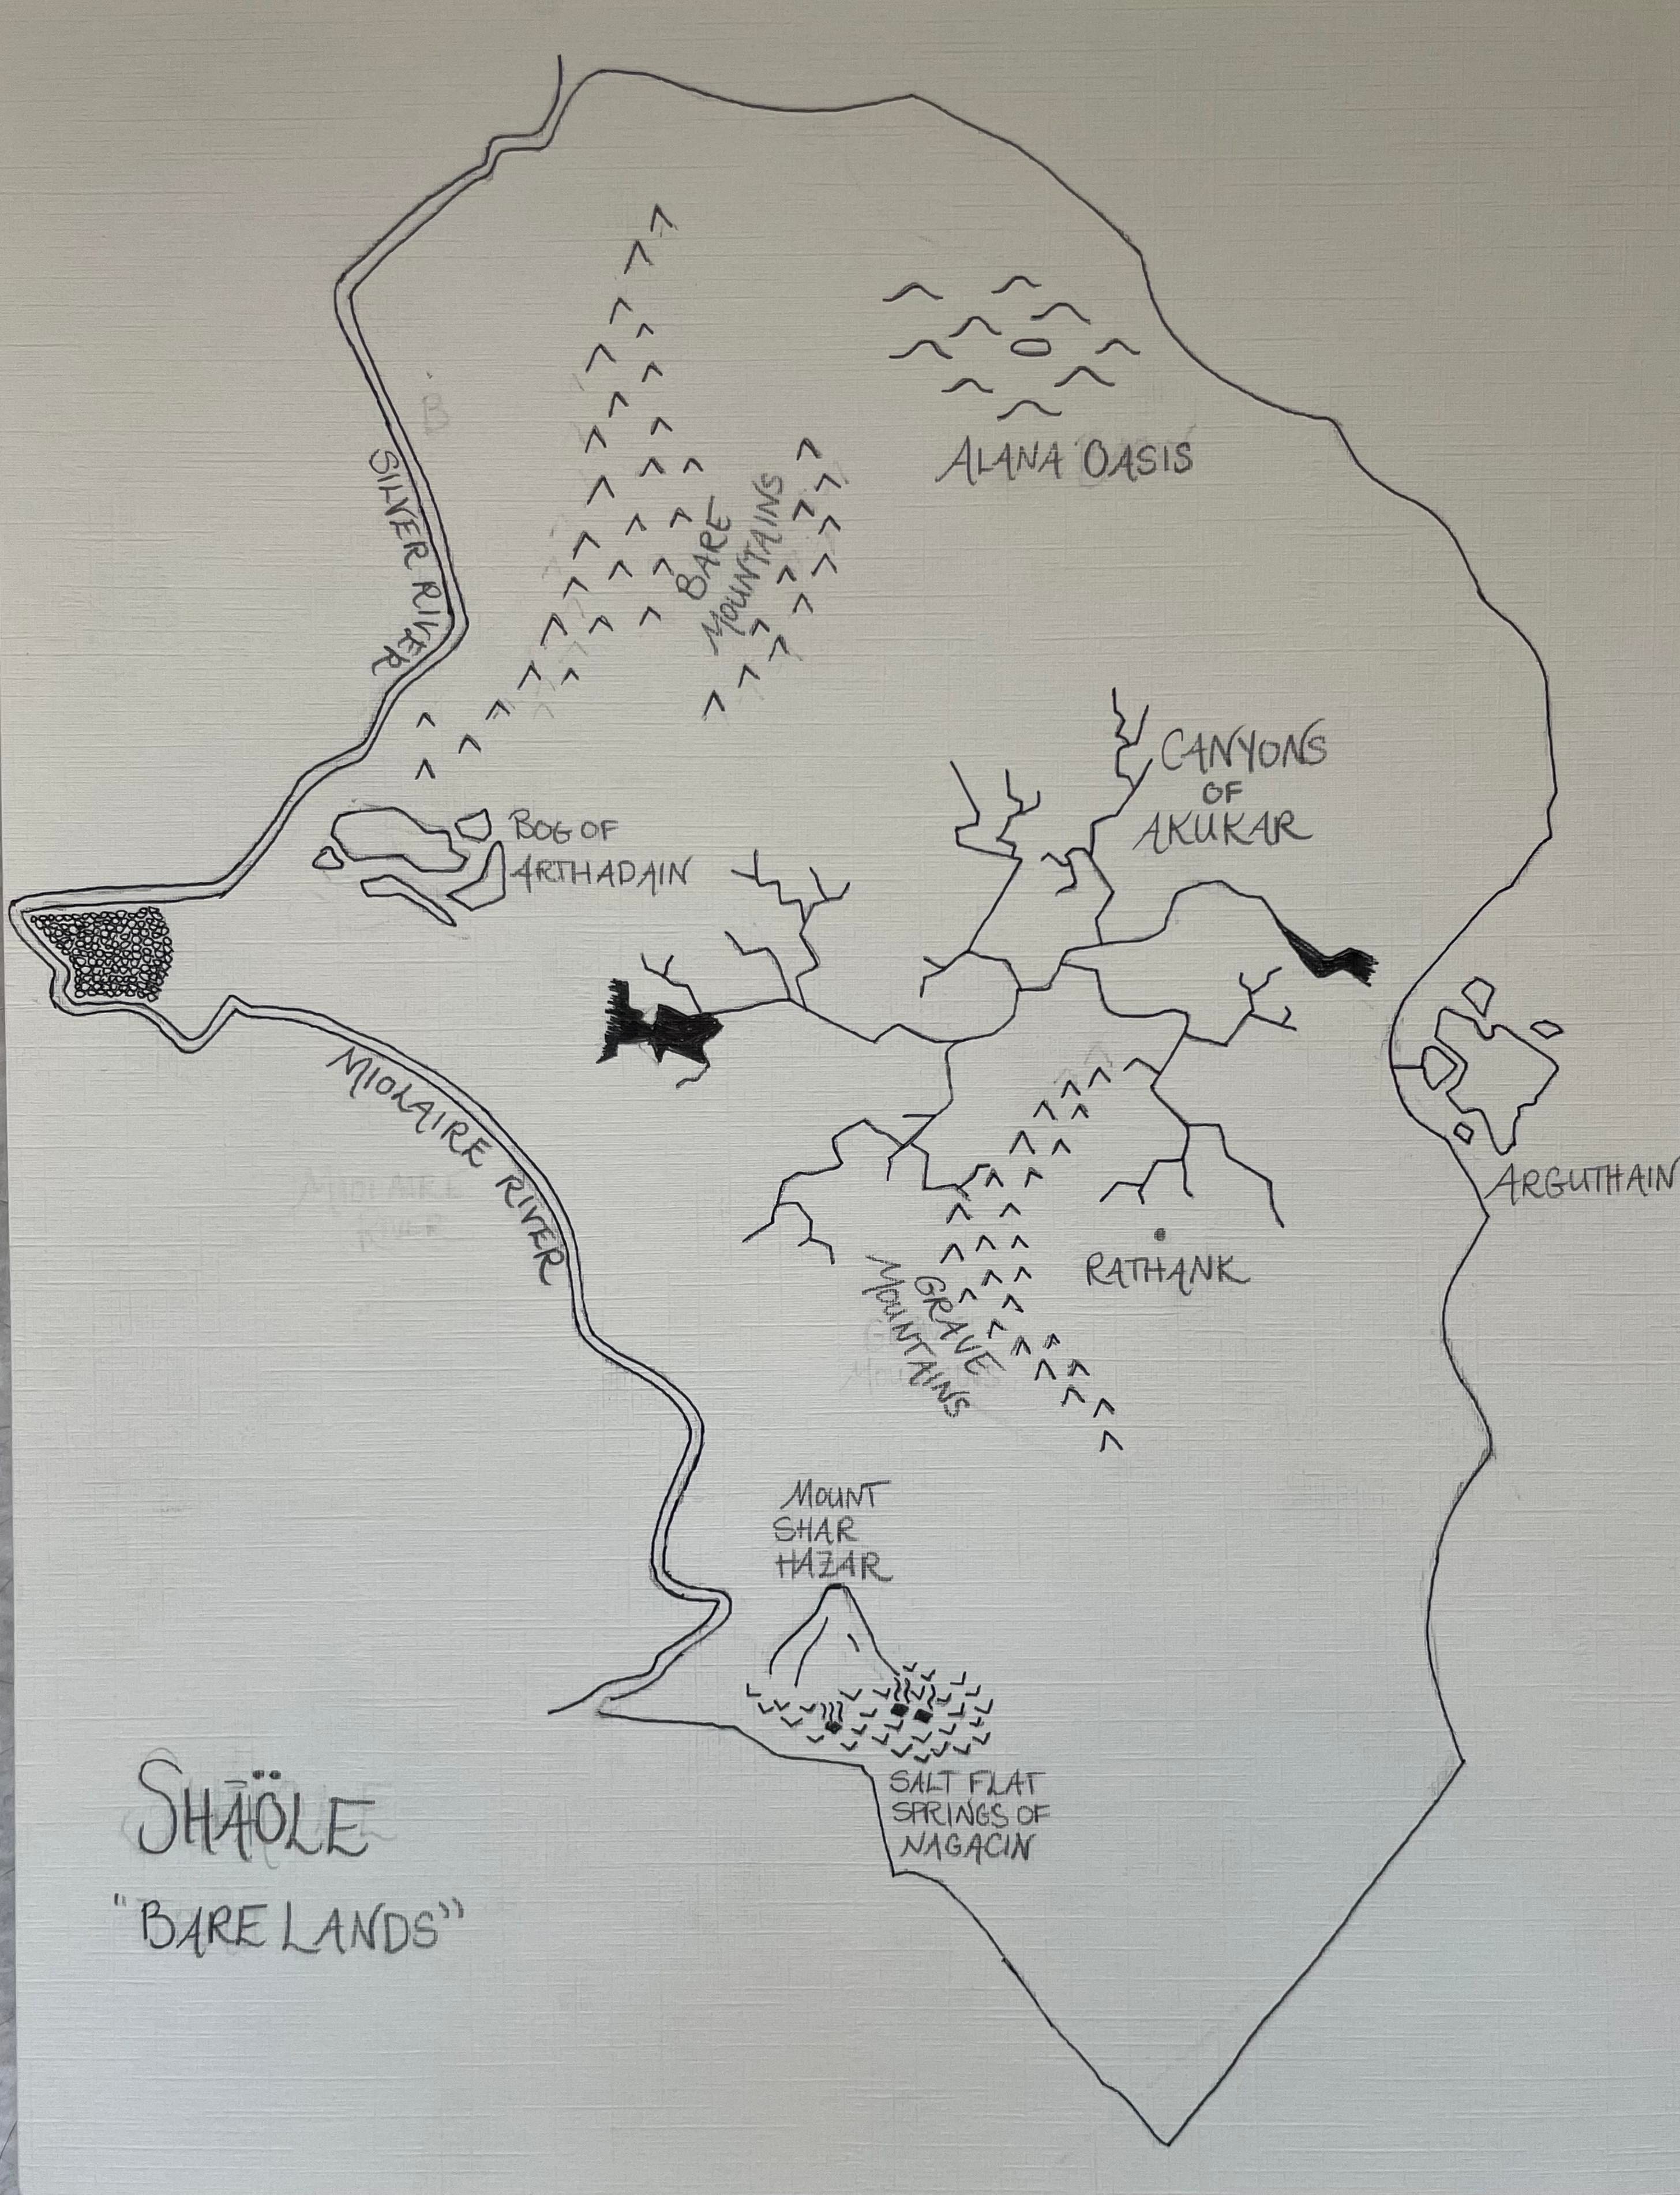 ALANA OASIS
SILVER RIVER
BARE
MOUNTAINS
CANYONS
OF
AKUKAR
BOG OF
ARTHADAIN
MIOLAIRE RIVER
ARGUTHAIN
RATHANK
GRAVE
MOUNTAINS
MOUNT
SHAR
HAZAR
SALT FLAT
SPRINGS OF
NAGACIN
SHĀÖLE
"BARE LANDS"